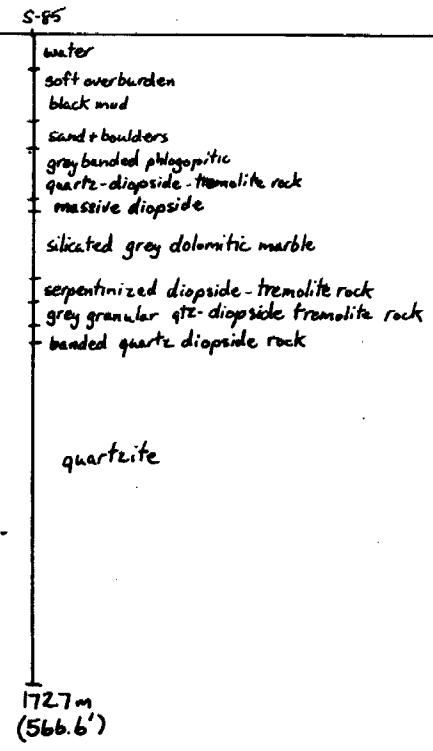 S-85
water
soft overburden
black mud
sand + boulders
grey banded phlogopitic
quartz-diopside-tremolite rock
massive diopside
silicated grey dolomitic marble
serpentinized diopside-tremolite rock
grey granular qtz-diopside tremolite rock
banded quartz diopside rock
quartzite
172.7 m
(566.6')